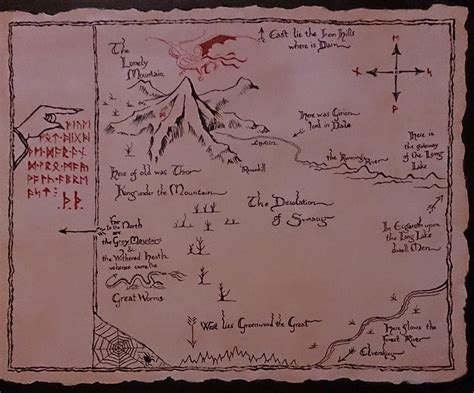 East lie the Iron Hills
where is Dain
The
Lonely
Mountain
Here was Girion
lord in Dale
There is
the gateway
of the Long
Lake
the Running River
Ravenhill
Here of old was Thror
King under the Mountain
The Desolation
of Smaug
Far
to the North
are the Grey Mountains
&
the Withered Heath
whence came the
Great Worms
In Esgaroth upon
the Long Lake
dwell Men
West lies Greenwood the Great
Here flows the
Forest River
Elvenking